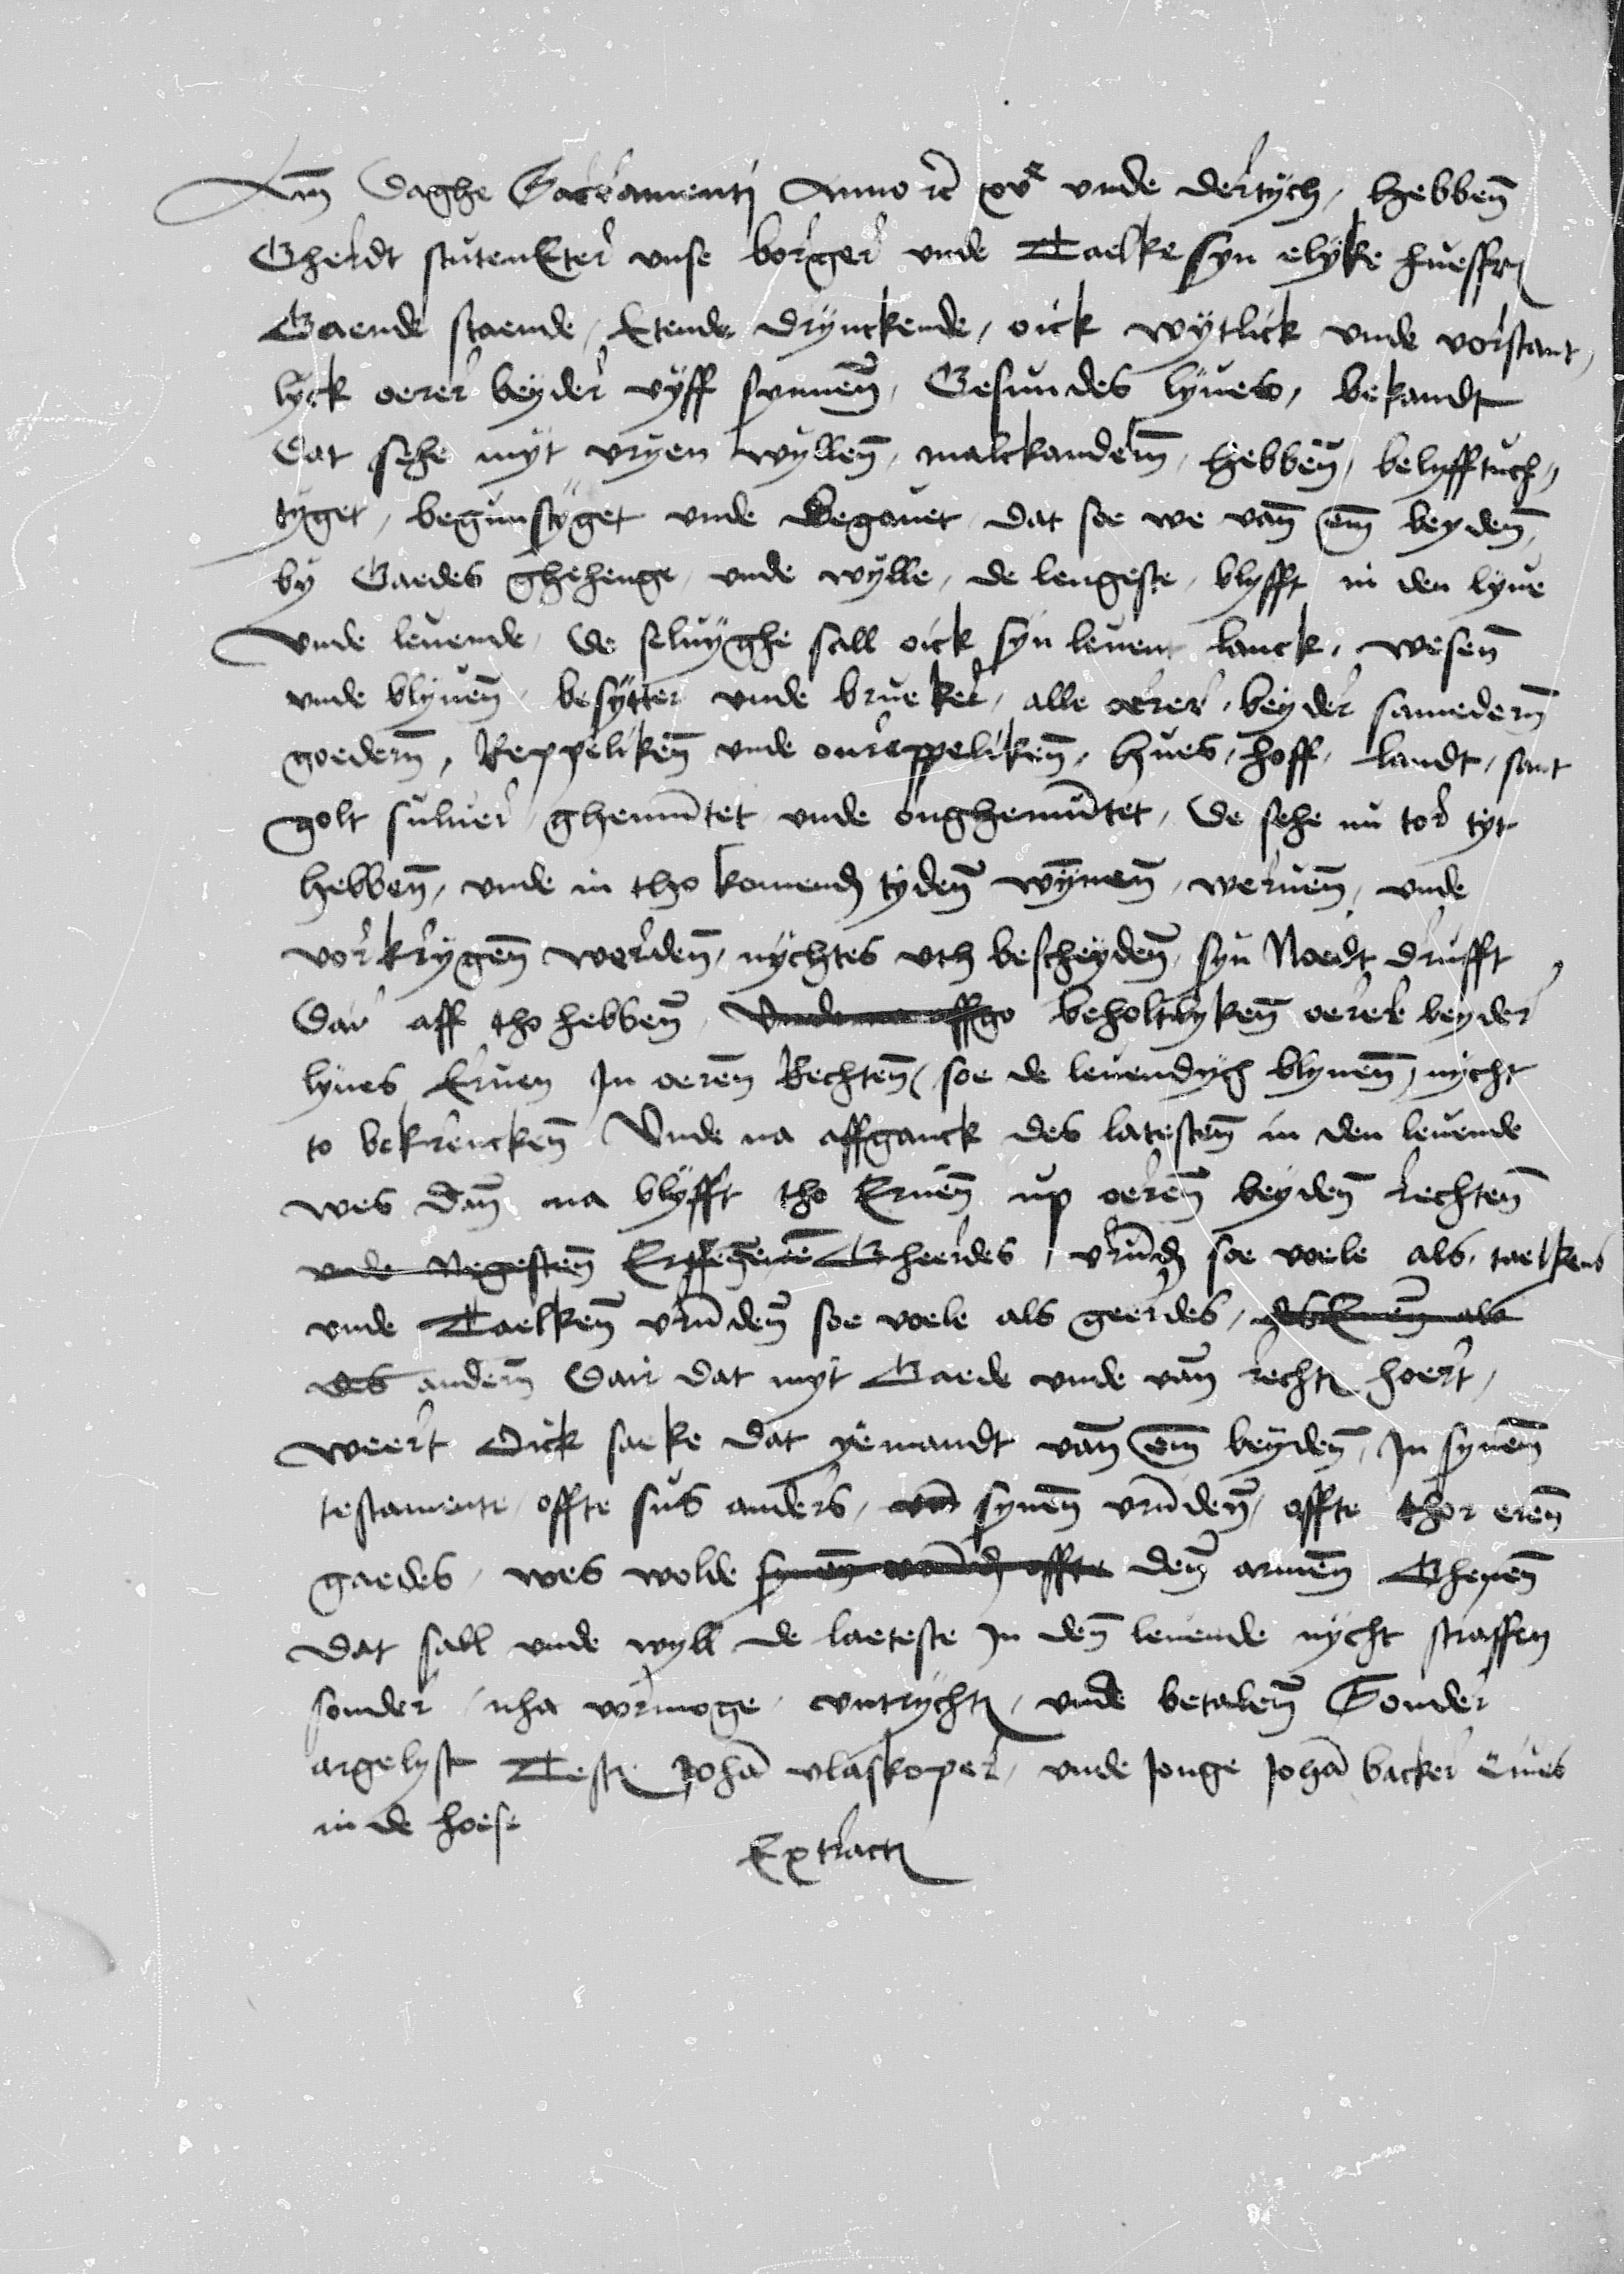 Am Daghe Sacramenti Anno rc xvc unde dertych, hebben̄
Gherdt stutenEter unse borger unde Taelke syn elyke huesfr
Gaende staende, Etende drynckende, oick wytlick unde vorstant,
lyck oerer beyder vyff synnen̄, Gesundes lyues, bekandt
Dat sehe myt vryen wyllen̄, malckandern̄, hebben̄, belyfftuch,,
tyget, begunstyget unde Begauet dat soe we van̄ em̄ beyden̄,
by Gaedes ghehenge unde wylle, de lengeste, blyfft in den lyue
Unde leuende, De seluyghe sall oick syn leuent lanck, wesen̄
unde blyuen̄, besytter unde brueker, alle oerer, beyder samedern̄
goedern̄, Reppeliken̄ unde onreppeliken̄, hues, hoff, landt, sant
golt suluer ghemūtet unde onghemūtet, De sehe nu tor tyt
hebben̄, unde in tho komend tyden̄ wȳnen̄, weruen̄, unde
vorkrygen̄ werden̄, nychtes uth bescheyden̄, syn Noedt drufft
Dar aff tho hebben̄, Unde na affgo beholtlyken̄ oerer beyder
lyues Eruen In oeren̄ Rechten̄, soe de leuendych blyuen̄, nycht
to bekrencken̄ Unde na affganck des latesten̄ in den leuende
wes dan̄ na blyfft tho Eruen̄ up oeren̄ beyden̄ rechten̄
unde Negesten̄ Erffgenen̄ Gheerdes, vrūd soe voele als, taelkens
unde Taelken̄ vrūden̄ soe voele als geerdes, des Enen̄ als
des andern̄ Dair dat myt Gaede unde van̄ recht hoert,
weert Oick saeke dat yemandt van̄ em̄ beyden̄, In synen̄
testamente, offte sus anders, van̄ synen̄ vrūden̄, offte thor eren̄
gaedes, wes wolde synen̄ vrūd offte den̄ armen̄ Gheuen̄
Dat sall unde wyll de laeteste In den̄ leuende nycht straffen
sonder, nha vormoge, untrycht, unde betalen̄ Sonder
argelyst Test Johā vlaskoper, unde Jonge Johā backer
in de hoese
Extract